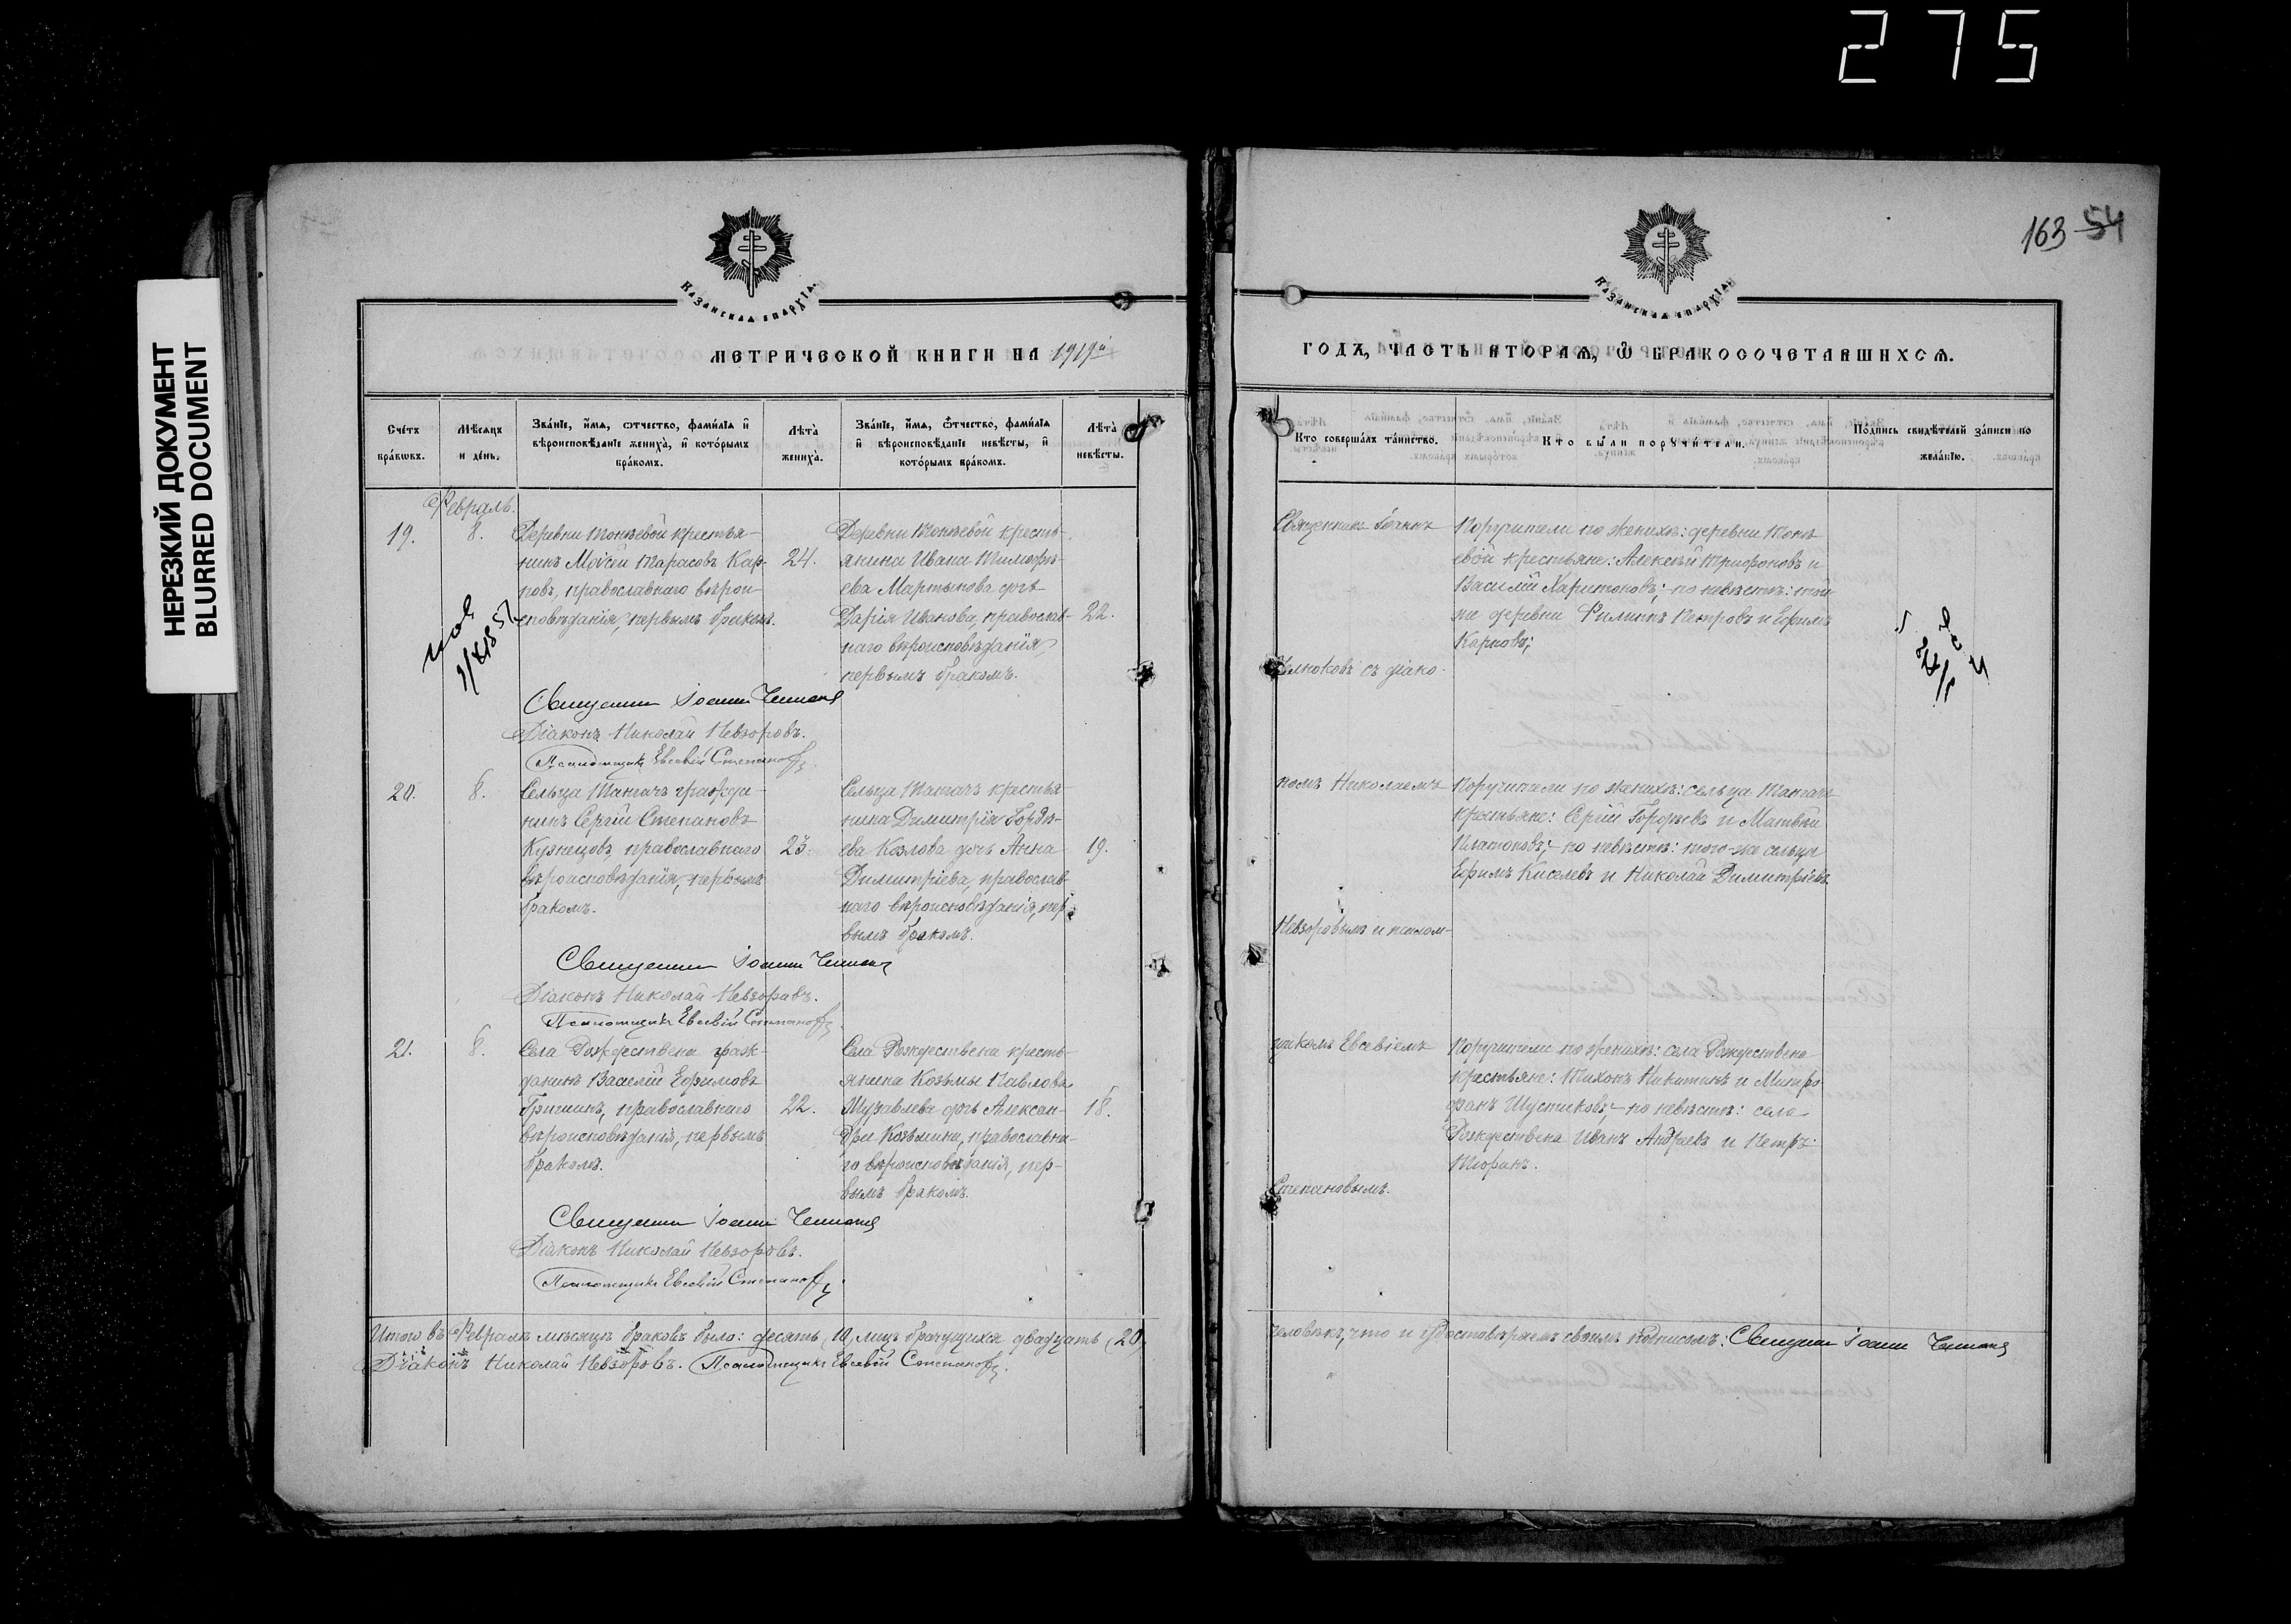 275
НЕРЕЗКИЙ ДОКУМЕНТ
BLURRED DOCUMENT
163 54
КАЗАНСКАЯ ЕПАРХІЯ
КАЗАНСКАЯ ЕПАРХІЯ
МЕТРИЧЕСКОЙ КНИГИ НА 1919й
ГОДА, ЧАСТЬ ВТОРАЯ, Ѽ БРАКОСОЧЕТАВШИХСЯ.
Счетъ браковъ.
Мѣсяцъ и день.
Званіе, имя, отчество, фамилія и вѣроисповѣданіе жениха, и которымъ бракомъ.
Лѣта жениха.
Званіе, имя, отчество, фамилія и вѣроисповѣданіе невѣсты, и которымъ бракомъ.
Лѣта невѣсты.
Кто совершалъ таинство.
Кто были поручители.
Подпись свидѣтелей записи по желанію.
Февраль.
19.
8.
Деревни крестья-
нинъ Моѵсей Тарасовъ Кар-
повъ, православнаго вѣрои-
сповѣданія, первымъ бракомъ.
24.
Деревни кресть-
янина Ивана Тимофѣ-
ева Мартынова дочь
Дарія Иванова, православ-
наго вѣроисповѣданія,
первымъ бракомъ.
22.
Священникъ Іоаннъ
съ діако-
Поручители по женихѣ: деревни
евой крестьяне: Алексѣй Трифоновъ и
Василій Харитоновъ; по невѣстѣ: той-
же деревни Филиппъ Петровъ и Ефимъ
Карповъ;
Священникъ Іоаннъ
Діаконъ Николай Невзоровъ.
Псаломщикъ Евсевій Степановъ.
20.
8.
Сельца гражда-
нинъ Сергій Степановъ
Кузнецовъ, православнаго
вѣроисповѣданія, первымъ
бракомъ.
23.
Сельца крестья-
нина Димитрія Гордѣ-
ева Козлова дочь Анна
Димитріева, православ-
наго вѣроисповѣданія, пер-
вымъ бракомъ.
19.
номъ Николаемъ
Невзоровымъ и псалом-
Поручители по женихѣ: сельца
крестьяне: Сергій Гордѣевъ и Матвѣй
Платоновъ; по невѣстѣ: того-же сельца
Ефимъ Киселевъ и Николай Димитріевъ.
Священникъ Іоаннъ
Діаконъ Николай Невзоровъ.
Псаломщикъ Евсевій Степановъ.
21.
8.
Села Рождествена граж-
данинъ Василій Ефимовъ
Гришинъ, православнаго
вѣроисповѣданія, первымъ
бракомъ.
22.
Села Рождествена кресть-
янина Козьмы Павлова
дочь Алексан-
дра Козьмина, православна-
го вѣроисповѣданія, пер-
вымъ бракомъ.
18.
щикомъ Евсевіемъ
Степановымъ.
Поручители по женихѣ: села Рождествена
крестьяне: Тихонъ Никитинъ и Митро-
фанъ Шустиковъ; по невѣстѣ: села
Рождествена Иванъ Андреевъ и Петръ
Тюринъ.
Священникъ Іоаннъ
Діаконъ Николай Невзоровъ.
Псаломщикъ Евсевій Степановъ.
Итого въ Февралѣ мѣсяцѣ браковъ было: десять, 10, лицъ брачущихся двадцать (20)
человѣкъ, что и удостовѣряемъ своимъ подписомъ: Священникъ Іоаннъ
Діаконъ Николай Невзоровъ. Псаломщикъ Евсевій Степановъ.